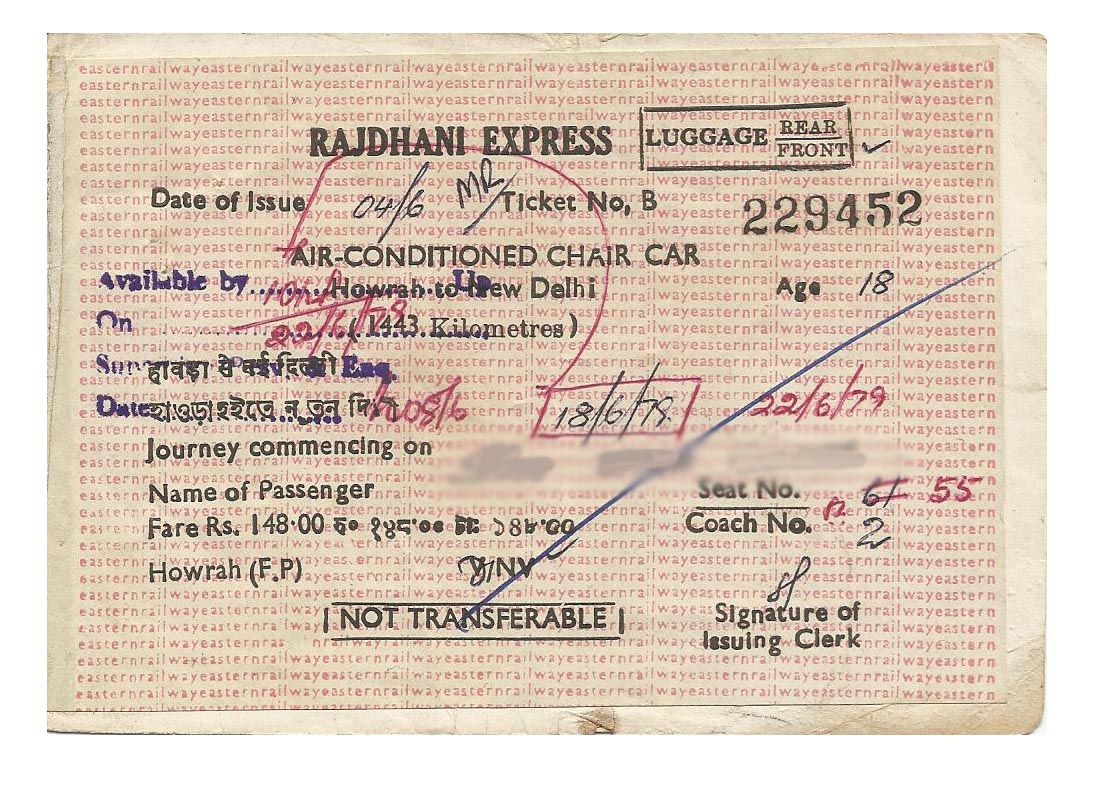 RAJDHANI EXPRESS LUGGAGE REAR FRONT ✓
Date of Issue 04/6 MR/ Ticket No, B 229452
AIR-CONDITIONED CHAIR CAR
Available by Up
Howrah to New Delhi Age 18
On 22/6/79 (1443 Kilometres)
हावड़ा से नई दिल्ली
Date
হাওড়া হইতে নূতন দিল্লী 08/6 18/6/79 22/6/79
Journey commencing on
Name of Passenger Seat No. 61 55
Fare Rs. 148·00 रु० १४८'०० টাঃ ১৪৮'০০ Coach No. 2
Howrah (F.P)
NOT TRANSFERABLE
Signature of
Issuing Clerk